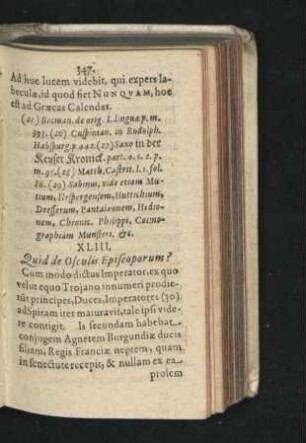 347.
Ad huc lucem videbit, qui expers la-
beculæ, id quod fiet NUNQVAM, hoc
est ad Græcas Calendas.
(25) Becman. de orig. L. linguæ p. m.
593. (26) Cuspinian. in Rudolph.
Habspurg. p 442. (27) Saxo in der
Keyser Kronick. part. 4. c. 2. p.
m. 91. (28) Matth. Castrit. l. 1. fol.
86. (29) Sabinus, vide etiam Mu-
tium, Urspergensem, Huttichium,
Dresserum, Pantaleonem, Hedio-
nem, Chronic. Philippi, Cosmo-
graphiam Munsteri, &c.
XLIII.
Quid de Osculis Episcoporum?
Cum modo dictus Imperator, ex quo
velut equo Trojano innumeri prodie-
rüt principes, Duces, Imperatores (30)
ad Spiram iter maturavit, tale ipsi vide-
re contigit. Is secundam habebat
conjugem Agnetem Burgundiæ ducis
filiam, Regis Franciæ neptem, quam
in senectute recepit, & nullam ex ea
prolem